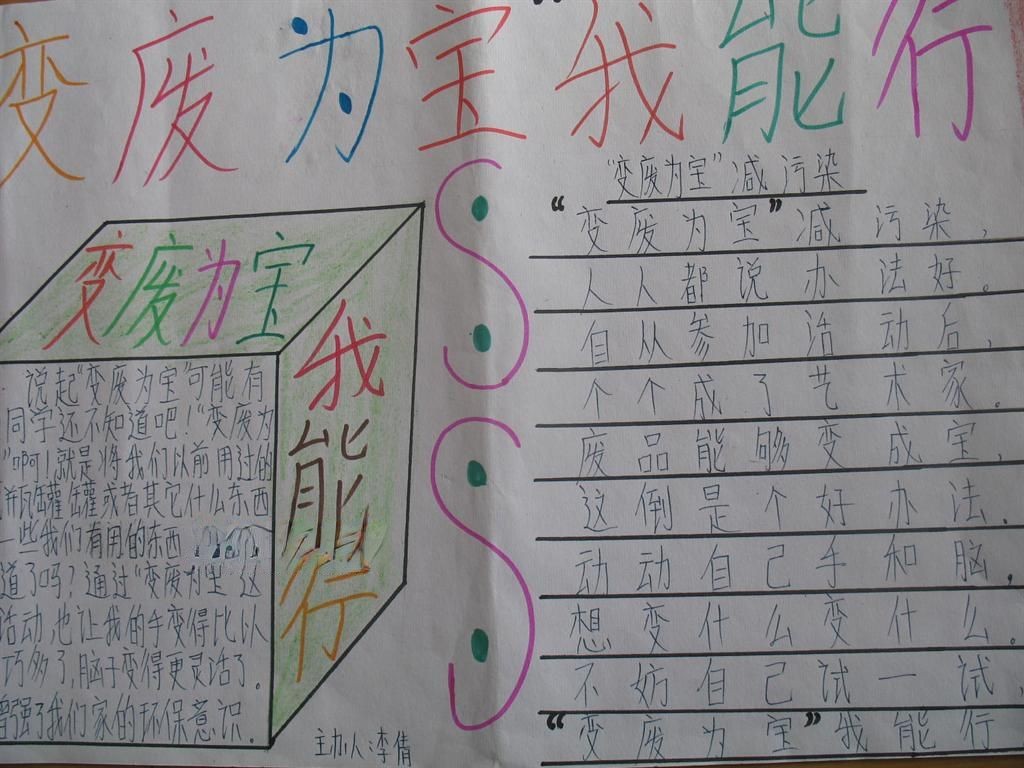 变废为宝“我能行
变废为宝
我能行
说起“变废为宝”可能有
同学还不知道吧！“变废为
”啊！就是将我们以前用过的
瓶罐罐或者其它什么东西
一些我们有用的东西
道了吗？通过“变废为宝”这
活动，也让我的手变得比以
巧多了，脑子变得更灵活了。
增强了我们家的环保意识。
主办人：李倩
“变废为宝”减污染
“变废为宝”减污染，
人人都说办法好。
自从参加活动后，
个个成了艺术家。
废品能够变成宝，
这倒是个好办法。
动动自己手和脑，
想变什么变什么。
不妨自己试一试，
“变废为宝”我能行